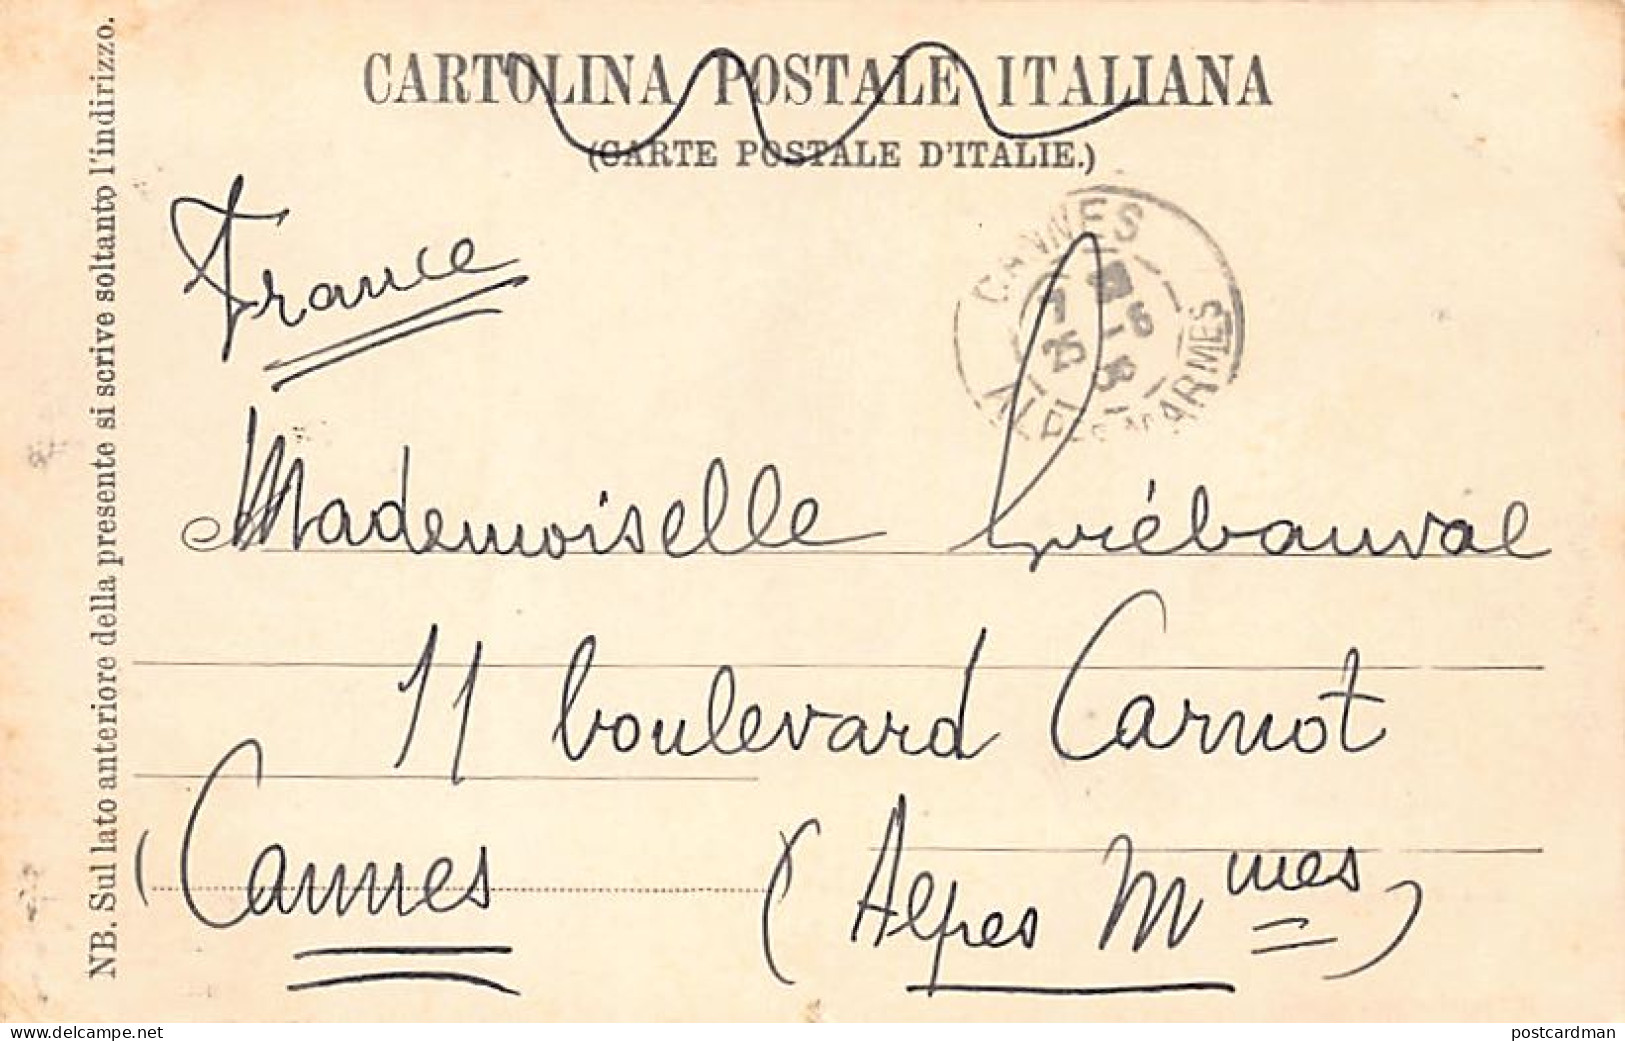 CARTOLINA POSTALE ITALIANA
(CARTE POSTALE D'ITALIE.)
NB. Sul lato anteriore della presente si scrive soltanto l'indirizzo.
France
CANNES
7
25 -5
06
ALPES MARMES
Mademoiselle Grébauval
11 boulevard Carnot
Cannes (Alpes Mmes)
postcardman